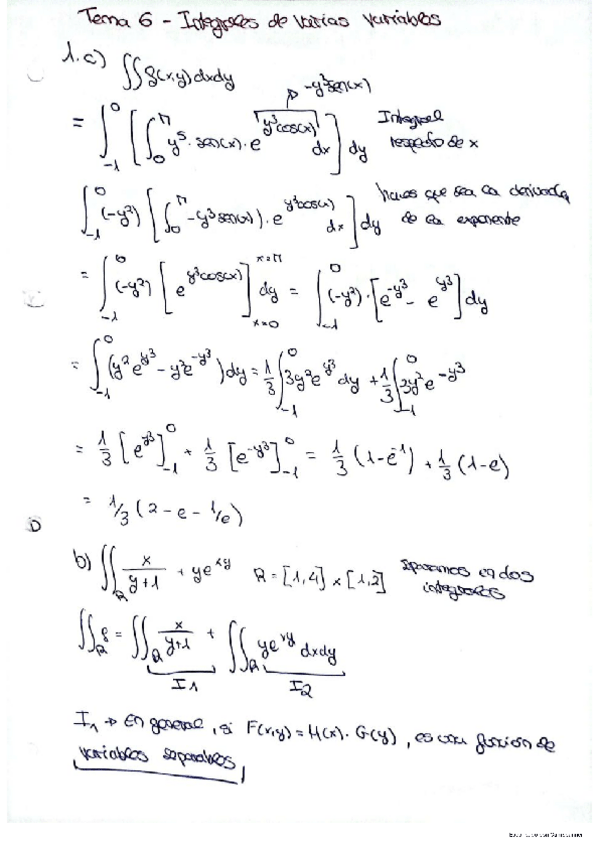 Tema 6 - Integrales de varias variables
1. a) ∬ f(x,y) dxdy
-y³sen(x)
= ∫_{-1}^{0} [ ∫_{0}^{π} y⁵ · sen(x) · e^{y³cos(x)} dx ] dy Integral respecto de x
∫_{-1}^{0} (-y²) [ ∫_{0}^{π} -y³sen(x)) · e^{y³cos(x)} dx ] dy haces que sea la derivada de la exponente
= ∫_{-1}^{0} (-y²) [ e^{y³cos(x)} ]_{x=0}^{x=π} dy = ∫_{-1}^{0} (-y²) · [ e^{-y³} - e^{y³} ] dy
= ∫_{-1}^{0} (y² e^{y³} - y² e^{-y³}) dy = 1/3 ∫_{-1}^{0} 3y² e^{y³} dy + 1/3 ∫_{-1}^{0} 3y² e^{-y³}
= 1/3 [ e^{y³} ]_{-1}^{0} + 1/3 [ e^{-y³} ]_{-1}^{0} = 1/3 (1 - e^{-1}) + 1/3 (1 - e)
= 1/3 (2 - e - 1/e)
b) ∬_R x/(y+1) + y e^{xy} R = [1,4] × [1,2] separamos en dos integrales
∬_R f = ∬_R x/(y+1) + ∬_R y e^{xy} dxdy
I1 I2
I1 → En general, si F(x,y) = H(x) · G(y), es una función de
variables separables